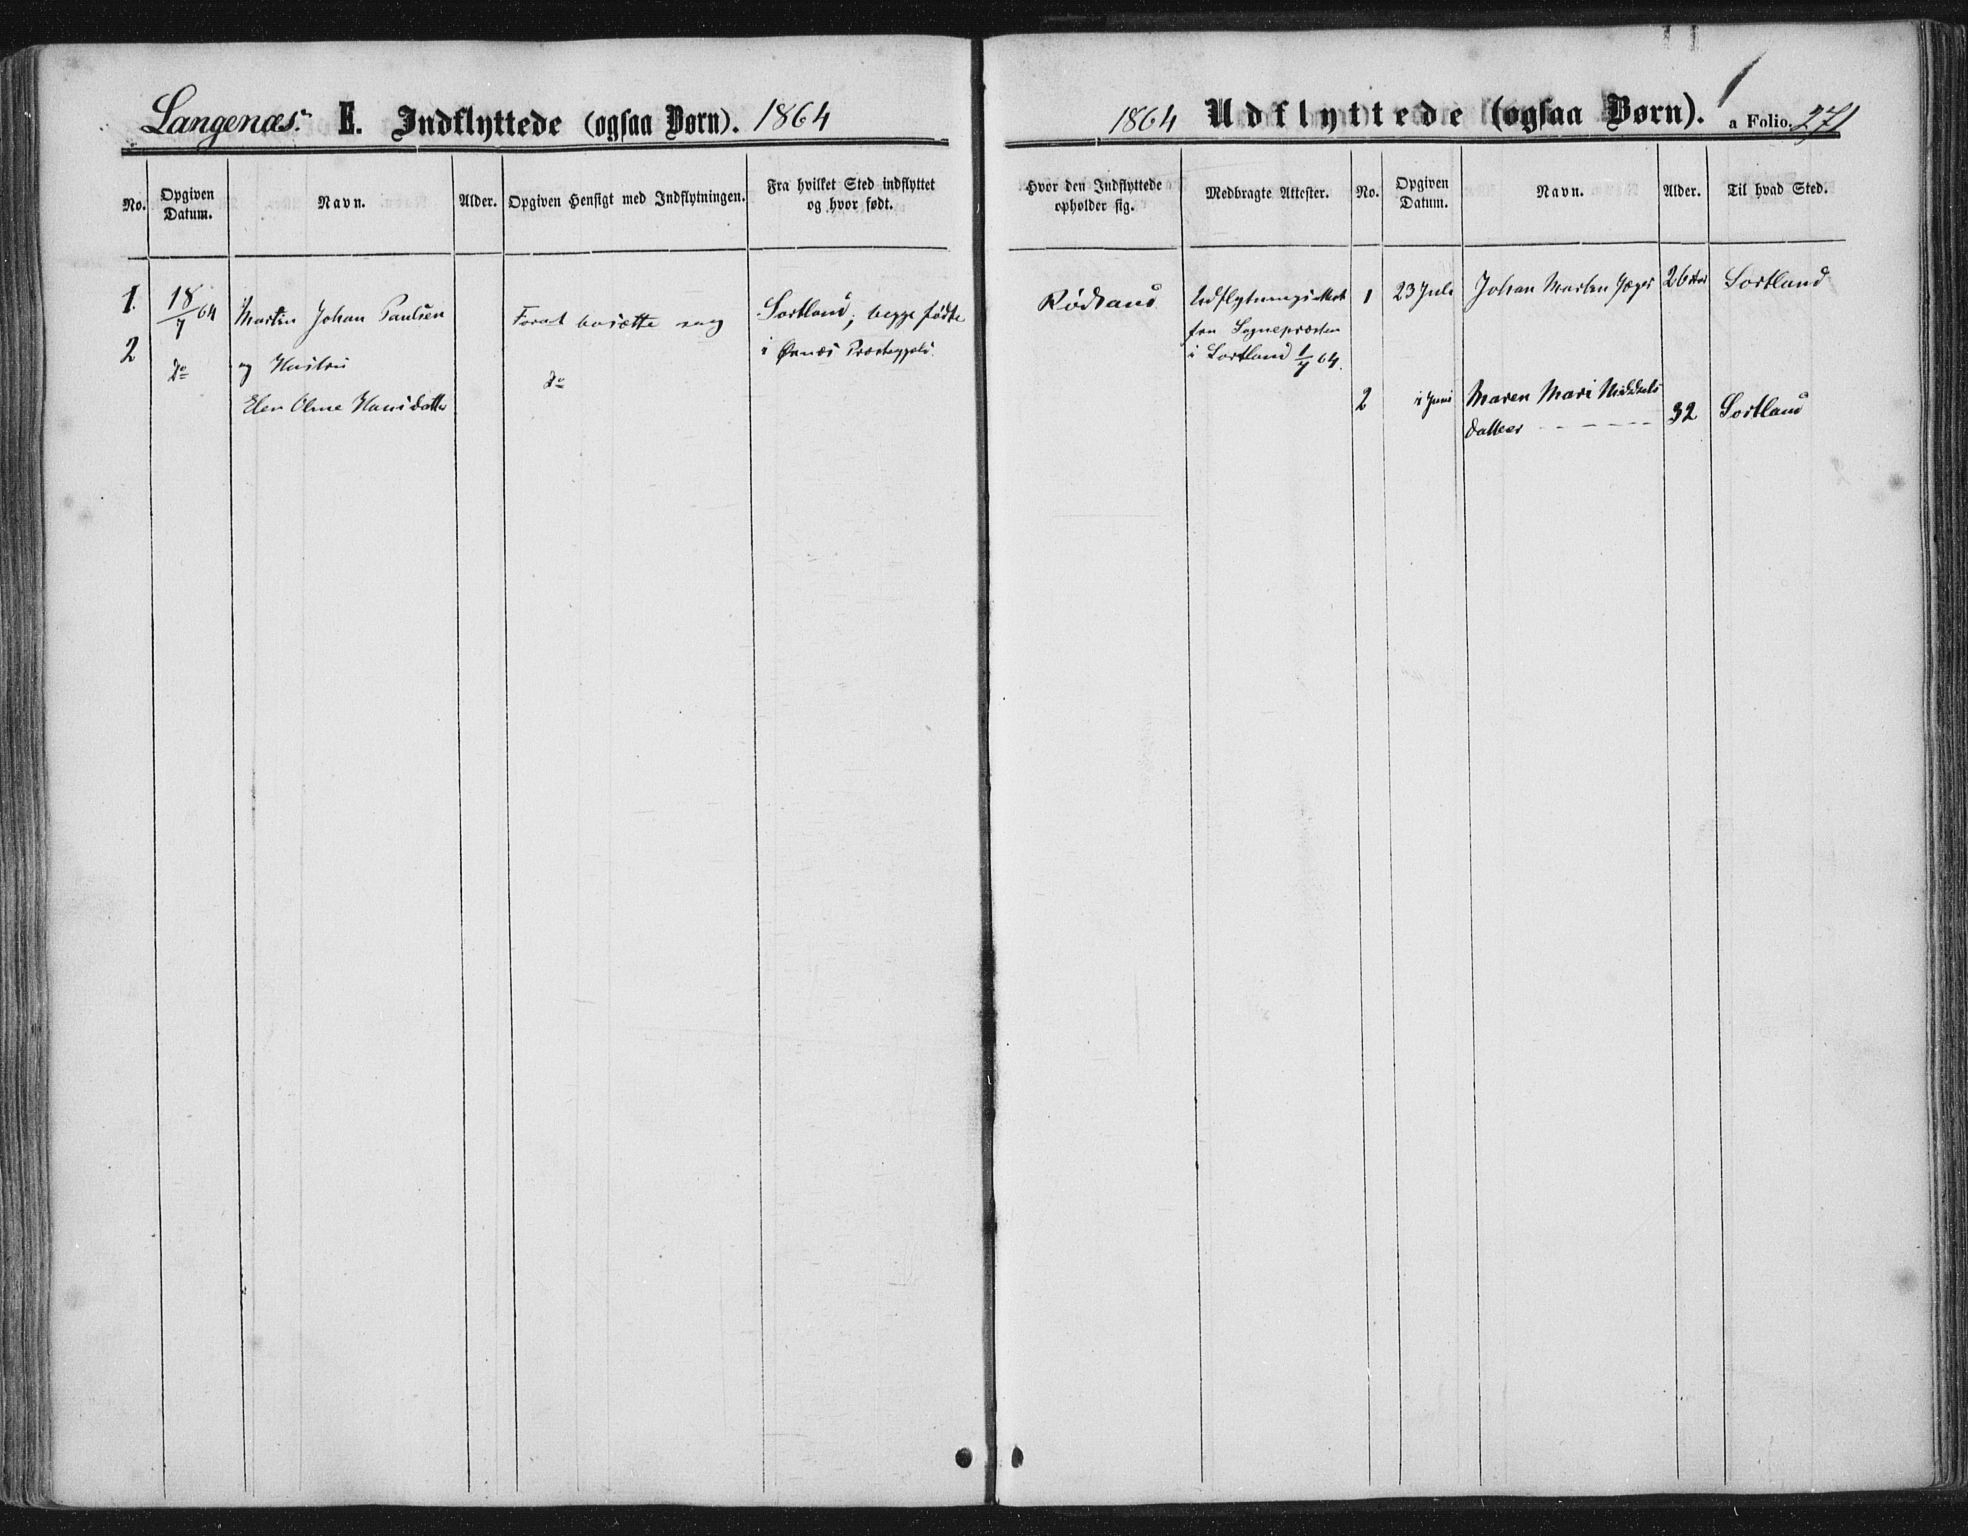 Langenæs. E. Indflyttede (ogsaa Børn). 1864
No. Opgiven Datum. Navn. Alder. Opgiven Hensigt med Indflytningen. Fra hvilket Sted indflyttet og hvor født.
1. 18/7 64 Martin Johan Paulsen Forat bosætte sig Sortland, begge fødte
2 do og Hustru do i Øxnæs Præstegjeld.
Hansdatter
1864 Udflyttede (ogsaa Børn). a Folio. 271
Hvor den Indflyttede opholder sig. Medbragte Attester. No. Opgiven Datum. Navn. Alder. Til hvad Sted.
Rødsand Udflytningsattest 1 23 Juli Johan Martin Jæger 26 Sortland
fra Sognepræsten
i Sortland 1/7 64.
2 i Juni Maren Mari Nikkels
datter 32 Sortland